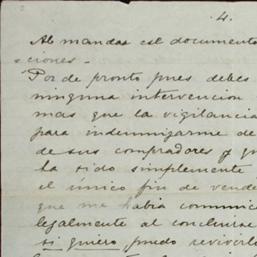 4.
Al mandar est documento
ciones.-
Por de pronto pues debes
ninguna intervencion
mas que la vigilancia
para indemnizarme de
de sus compradores y q
ha sido simplemente
el único fin de vende
que me habia comunic
legalmente al concluirse
si quiero puedo revivirlo